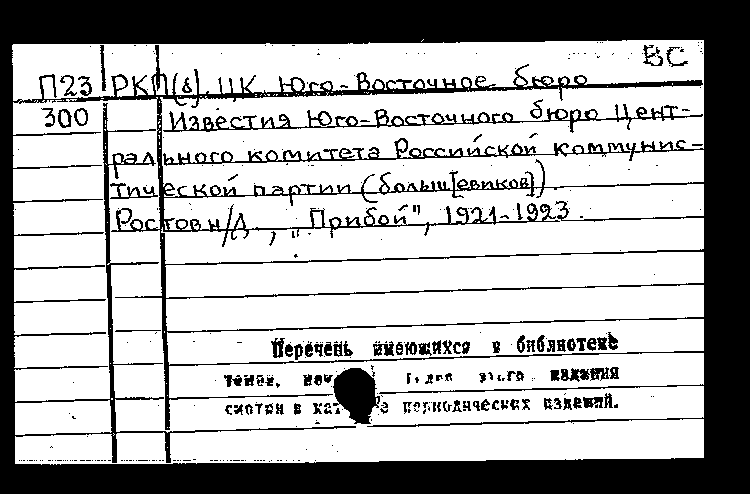 ВС
П23 РКП(б). ЦК. Юго-Восточное бюро
300 Известия Юго-Восточного бюро Цент-
рального комитета Российской коммунис-
тической партии (больш[евиков]).
Ростов н/Д, „Прибой", 1921-1923.
Перечень имеющихся в библиотеке
этого издания
смотри в периодических изданий.